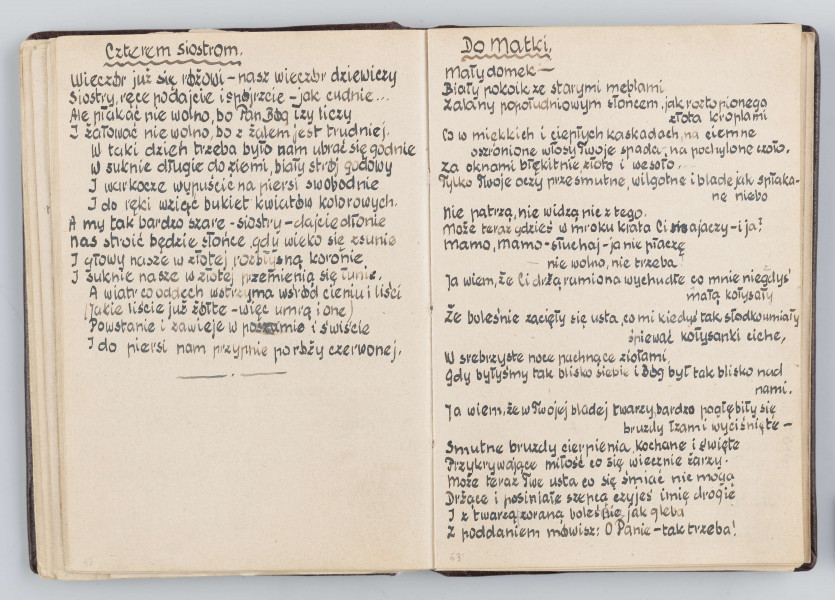 Czterem siostrom.
Wieczór już się różowi – nasz wieczór dziewiczy
Siostry, ręce podajcie i spójrzcie – jak cudnie...
Ale płakać nie wolno, bo Pan Bóg łzy liczy
I żałować nie wolno, bo z żalem jest trudniej.
W taki dzień trzeba było nam ubrać się godnie
W suknie długie do ziemi, biały strój godowy
I warkocze wypuścić na piersi swobodnie
I do ręki wziąć bukiet kwiatów kolorowych.
A my tak bardzo szare – siostry – dajcie dłonie
Nas stroić będzie słońce, gdy wieko się zsunie
I głowy nasze w złotej rozbłysną koronie
I suknie nasze w złotej przemienią się łunie.
A wiatr co oddech wstrzyma wśród cieniu i liści
(Jakie liście już żółte – więc umrą i one)
Powstanie i zawieje w poszumie i świście
I do piersi nam przypnie po róży czerwonej.
Do Matki.
Mały domek –
Biały pokoik ze starymi meblami
Zalany popołudniowym słońcem, jak roztopionego
złota kroplami
Co w miękkich i ciepłych kaskadach, na ciemne
oszronione włosy Twoje spada, na pochylone czoło.
Za oknami błękitnie złoto i wesoło.
Tylko Twoje oczy przesmutne, wilgotne i blade jak spłaka-
ne niebo
Nie patrzą, nie widzą nic z tego.
Może teraz gdzieś w mroku krata Ci majaczy – i ja?
Mamo, Mamo – słuchaj – ja nie płaczę
nie wolno, nie trzeba!
Ja wiem, że Ci drżą ramiona wychudłe co mnie niegdyś
małą kołysały
Że boleśnie zacięły się usta, co mi kiedyś tak słodko umiały
śpiewać kołysanki ciche,
W srebrzyste noce pachnące ziołami
Gdy byłyśmy tak blisko siebie i Bóg był tak blisko nad
nami.
Ja wiem, że w Twojej bladej twarzy, bardzo pogłębiły się
bruzdy łzami wyciśnięte –
Smutne bruzdy cierpienia, kochane i święte
Przykrywające miłość co się wiecznie żarzy.
Może teraz Twe usta co się śmiać nie mogą
Drżące i posiniałe szepcą czyjeś imię drogie
I z twarzą zoraną boleśnie, jak gleba
Z poddaniem mówisz: O Panie – tak trzeba!
63